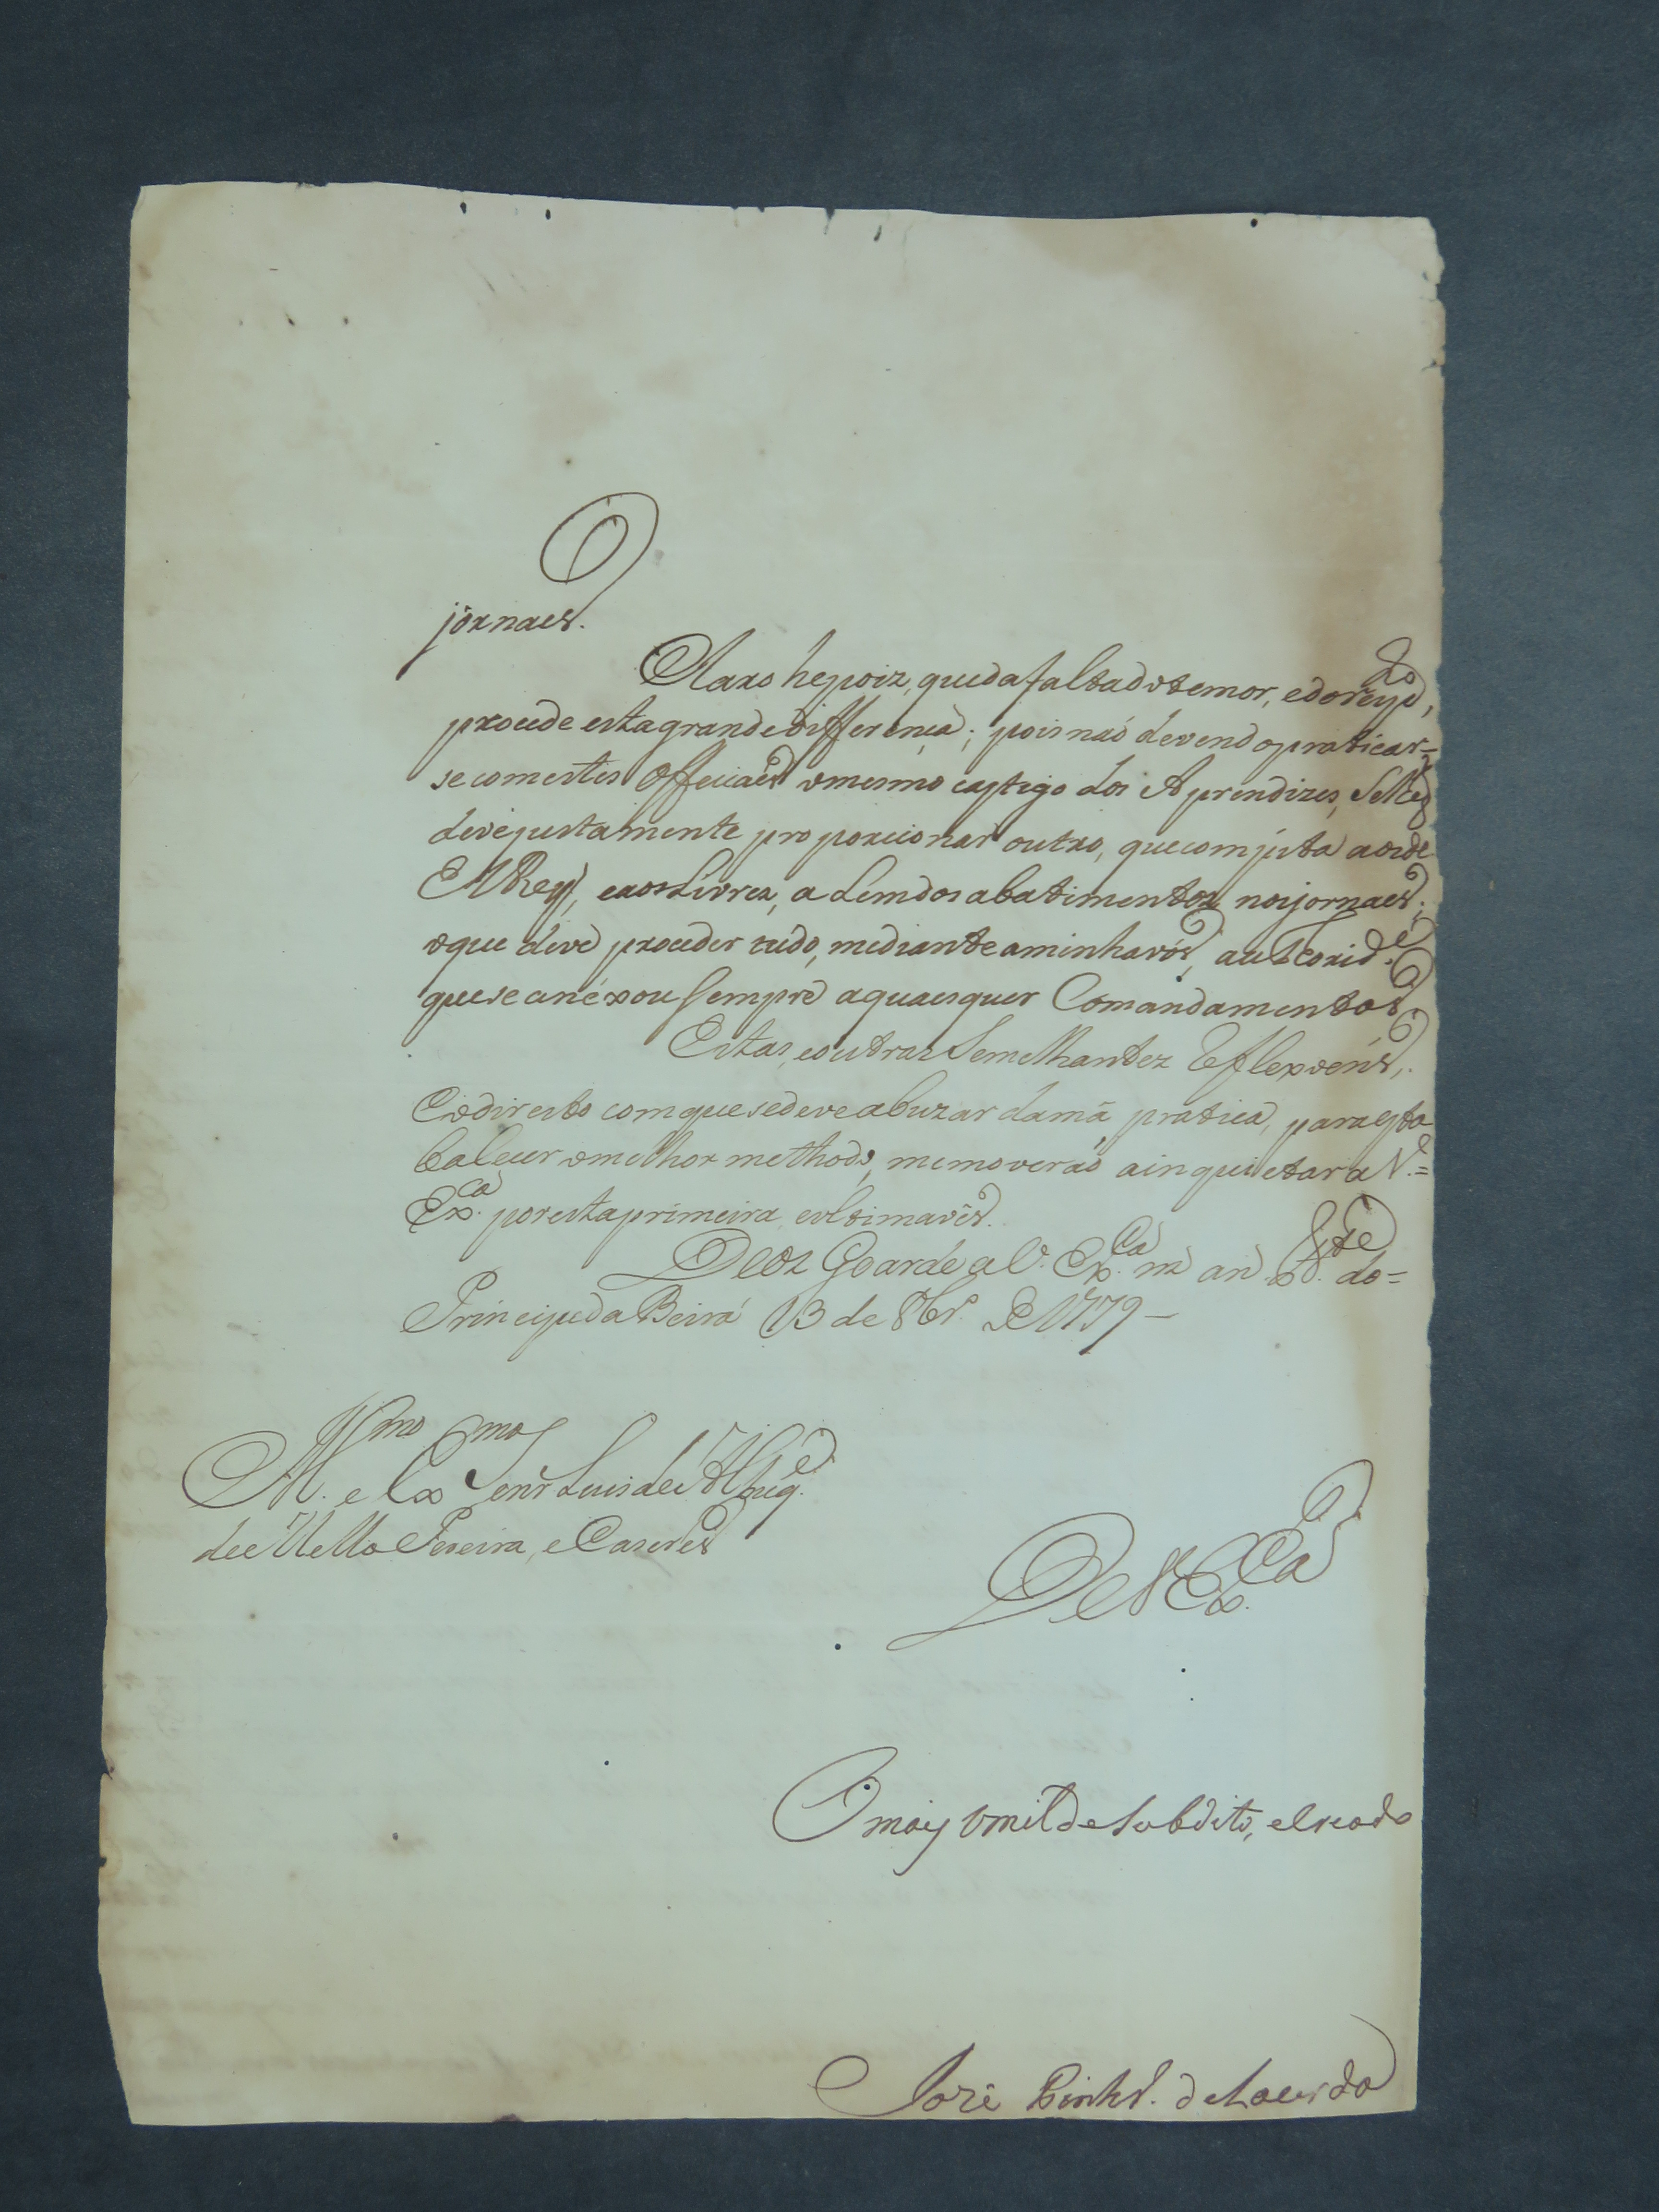 jornaes.
Claro he poiz, que da falta do temor, e do resp.to,
procede esta grande differença; pois naó devendo praticar=
se com estes Officiaes o mesmo castigo dos Aprendizes, se lhes
deve justamente proporcionar outro, que compita aos de
ElRey, e aos Livres, a lem dos abatimentos nos jornaes;
o que deve proceder tudo, mediante a minha vós, autorid.e
que se anéxou sempre a quaesquer Comandamentos.
Estas, e outras Semelhantez Reflexoens,
e o direito com que se deve abuzar da má pratica, para esta
balecer o melhor methodo, me moveráo a inquietar a V.=
Ex.ca por esta primeira, e ultima vês.
Deoz Goarde a V. Ex.ca m an F.te do=
Principe da Beira 13 de 8br.o de 1779—
Ill.mo e Ex.mo Senr Luis de Albuq.e
de Mello Pereira, e Caseres
De V. Ex.ca
O may umilde subdito, e criado
Joze Pinhr.o de Lacerda